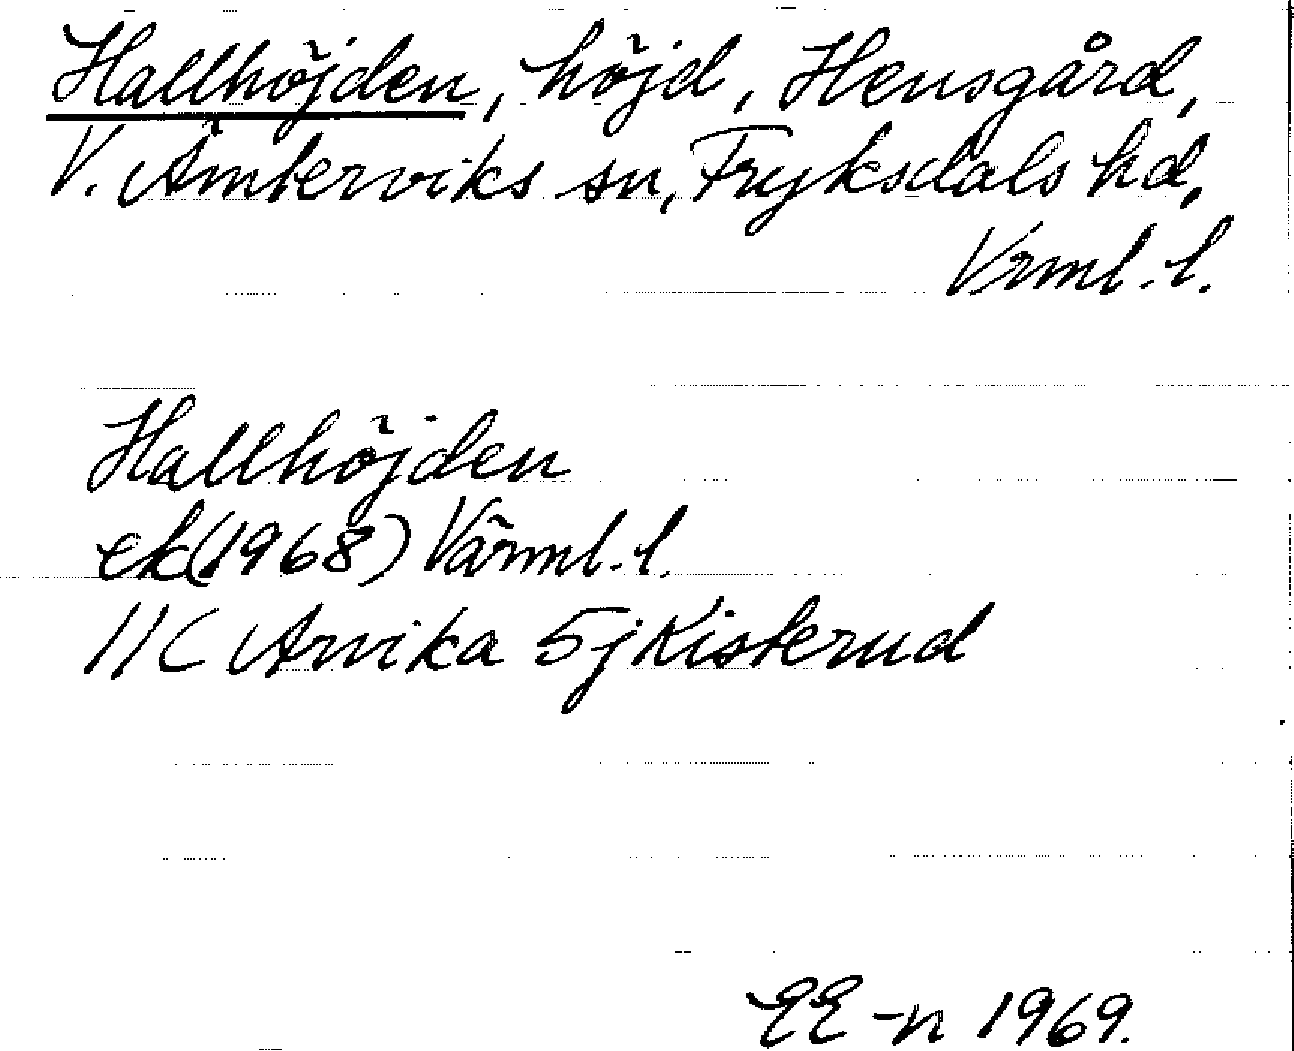 Hallhöjden, höjd, Hensgård,
V. Ämterviks sn, Fryksdals hd,
Vrml. l.
Hallhöjden
ek(1968) Värml. l.
11C Arvika 5j Kisterud
EE-n 1969.